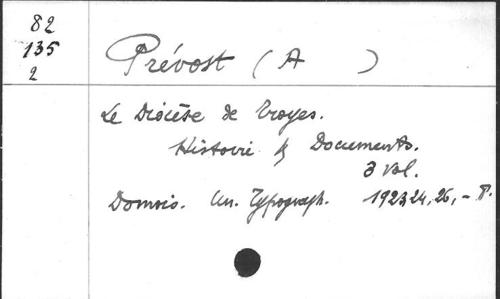 82
135
2
Prévost (A )
Le Diocèse de Troyes.
Histoire & Documents.
3 vol.
Domois. Un. Typograph. 1923 24, 26, - 8°.